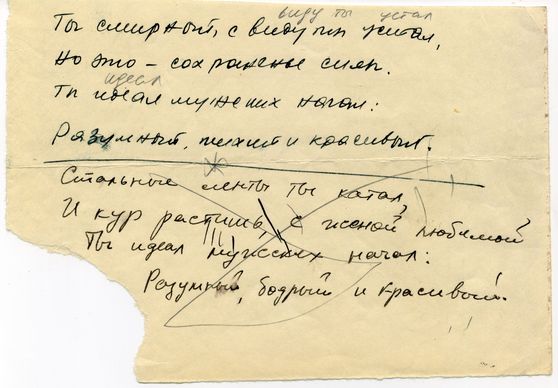 виду ты устал
Ты смирный, с виду ты устал,
Но это – сохраненье сил.
идеал
Ты идеал мужских начал:
Разумный, тихий и красивый.
Стальные ленты ты катал,
И кур растишь, с женой любимой
Ты идеал мужских начал:
Разумный, бодрый и красивый.